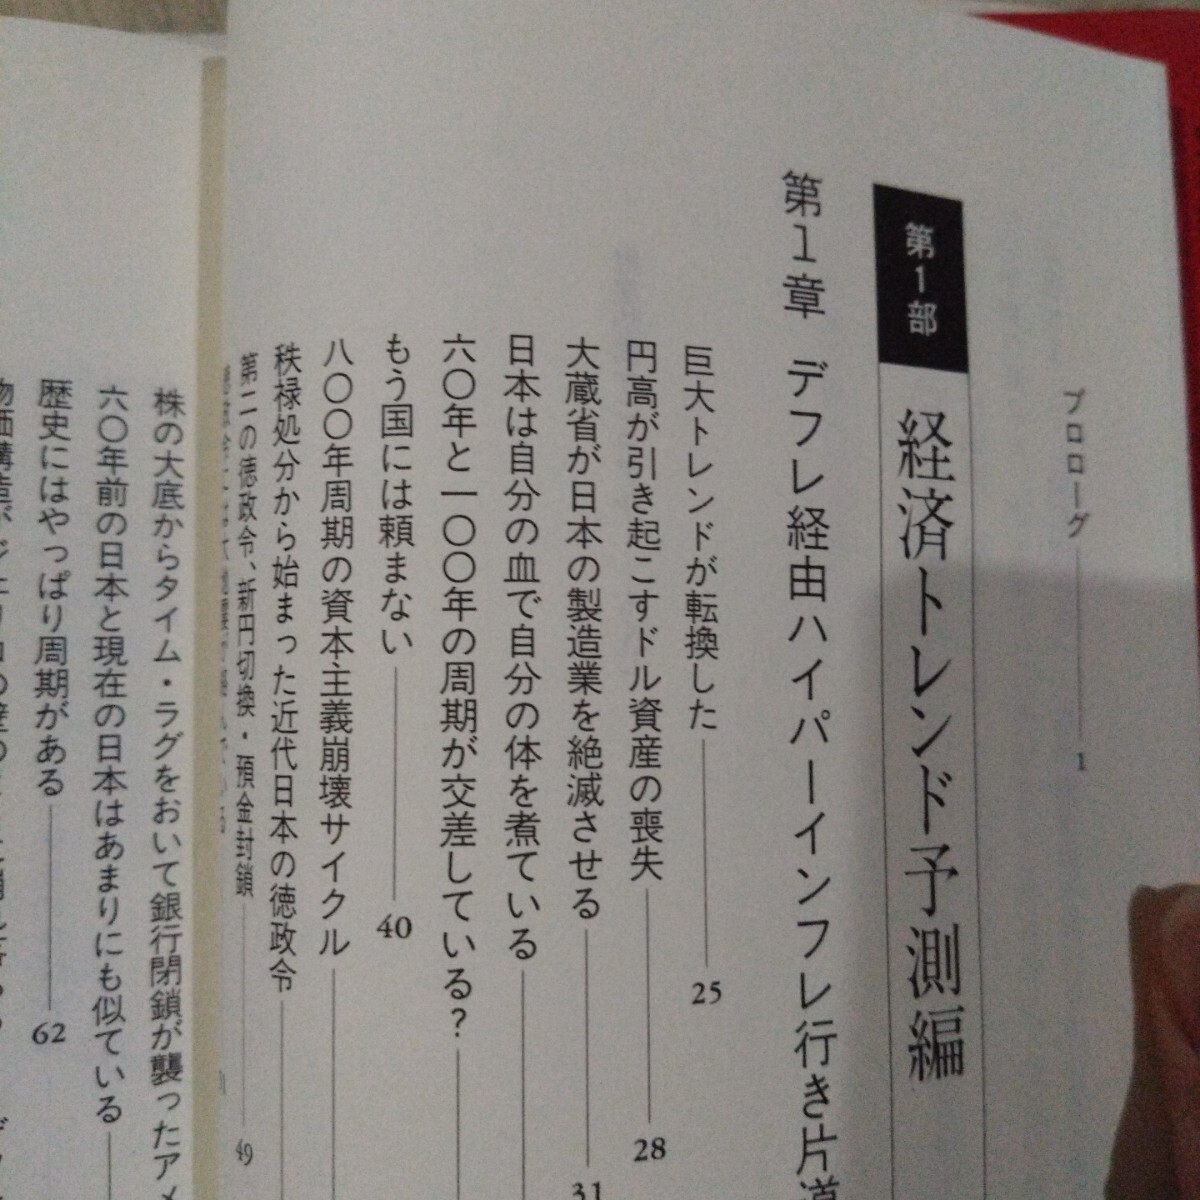 プロローグ 1
第1部 経済トレンド予測編
第1章 デフレ経由ハイパーインフレ行き片道
巨大トレンドが転換した 25
円高が引き起こすドル資産の喪失 28
大蔵省が日本の製造業を絶滅させる 31
日本は自分の血で自分の体を煮ている
六〇年と一〇〇年の周期が交差している？
もう国には頼まない 40
八〇〇年周期の資本主義崩壊サイクル
秩禄処分から始まった近代日本の徳政令
第二の徳政令、新円切換・預金封鎖 49
株の大底からタイム・ラグをおいて銀行閉鎖が襲ったアメ
六〇年前の日本と現在の日本はあまりにも似ている
歴史にはやっぱり周期がある 62